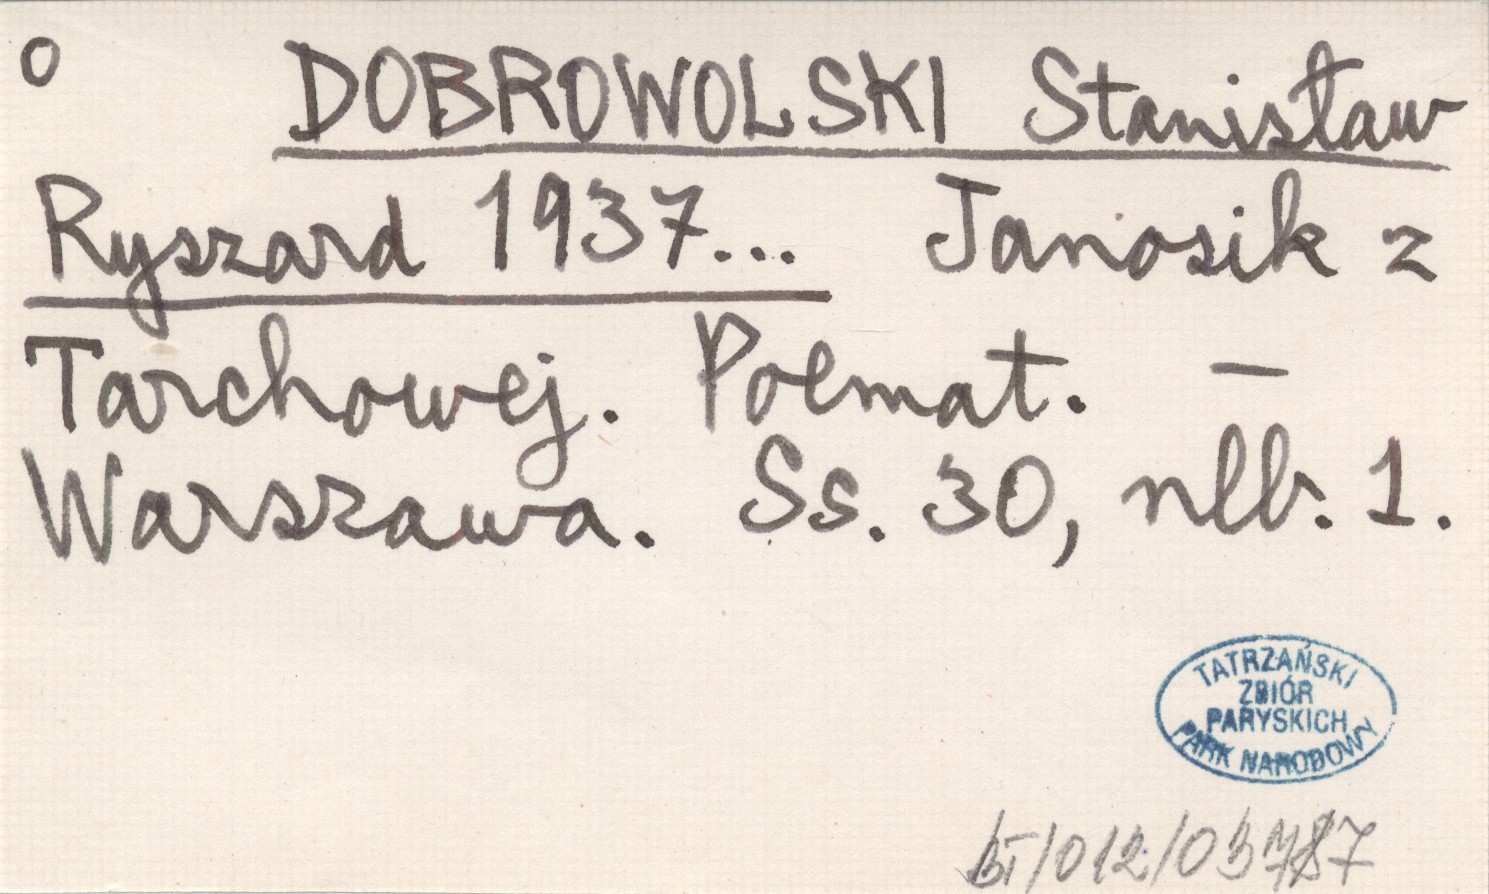 o DOBROWOLSKI Stanisław
Ryszard 1937... Janosik z
Tarchowej. Poemat. —
Warszawa. Ss. 30, nlb. 1.
TATRZAŃSKI
ZBIÓR
PARYSKICH
PARK NARODOWY